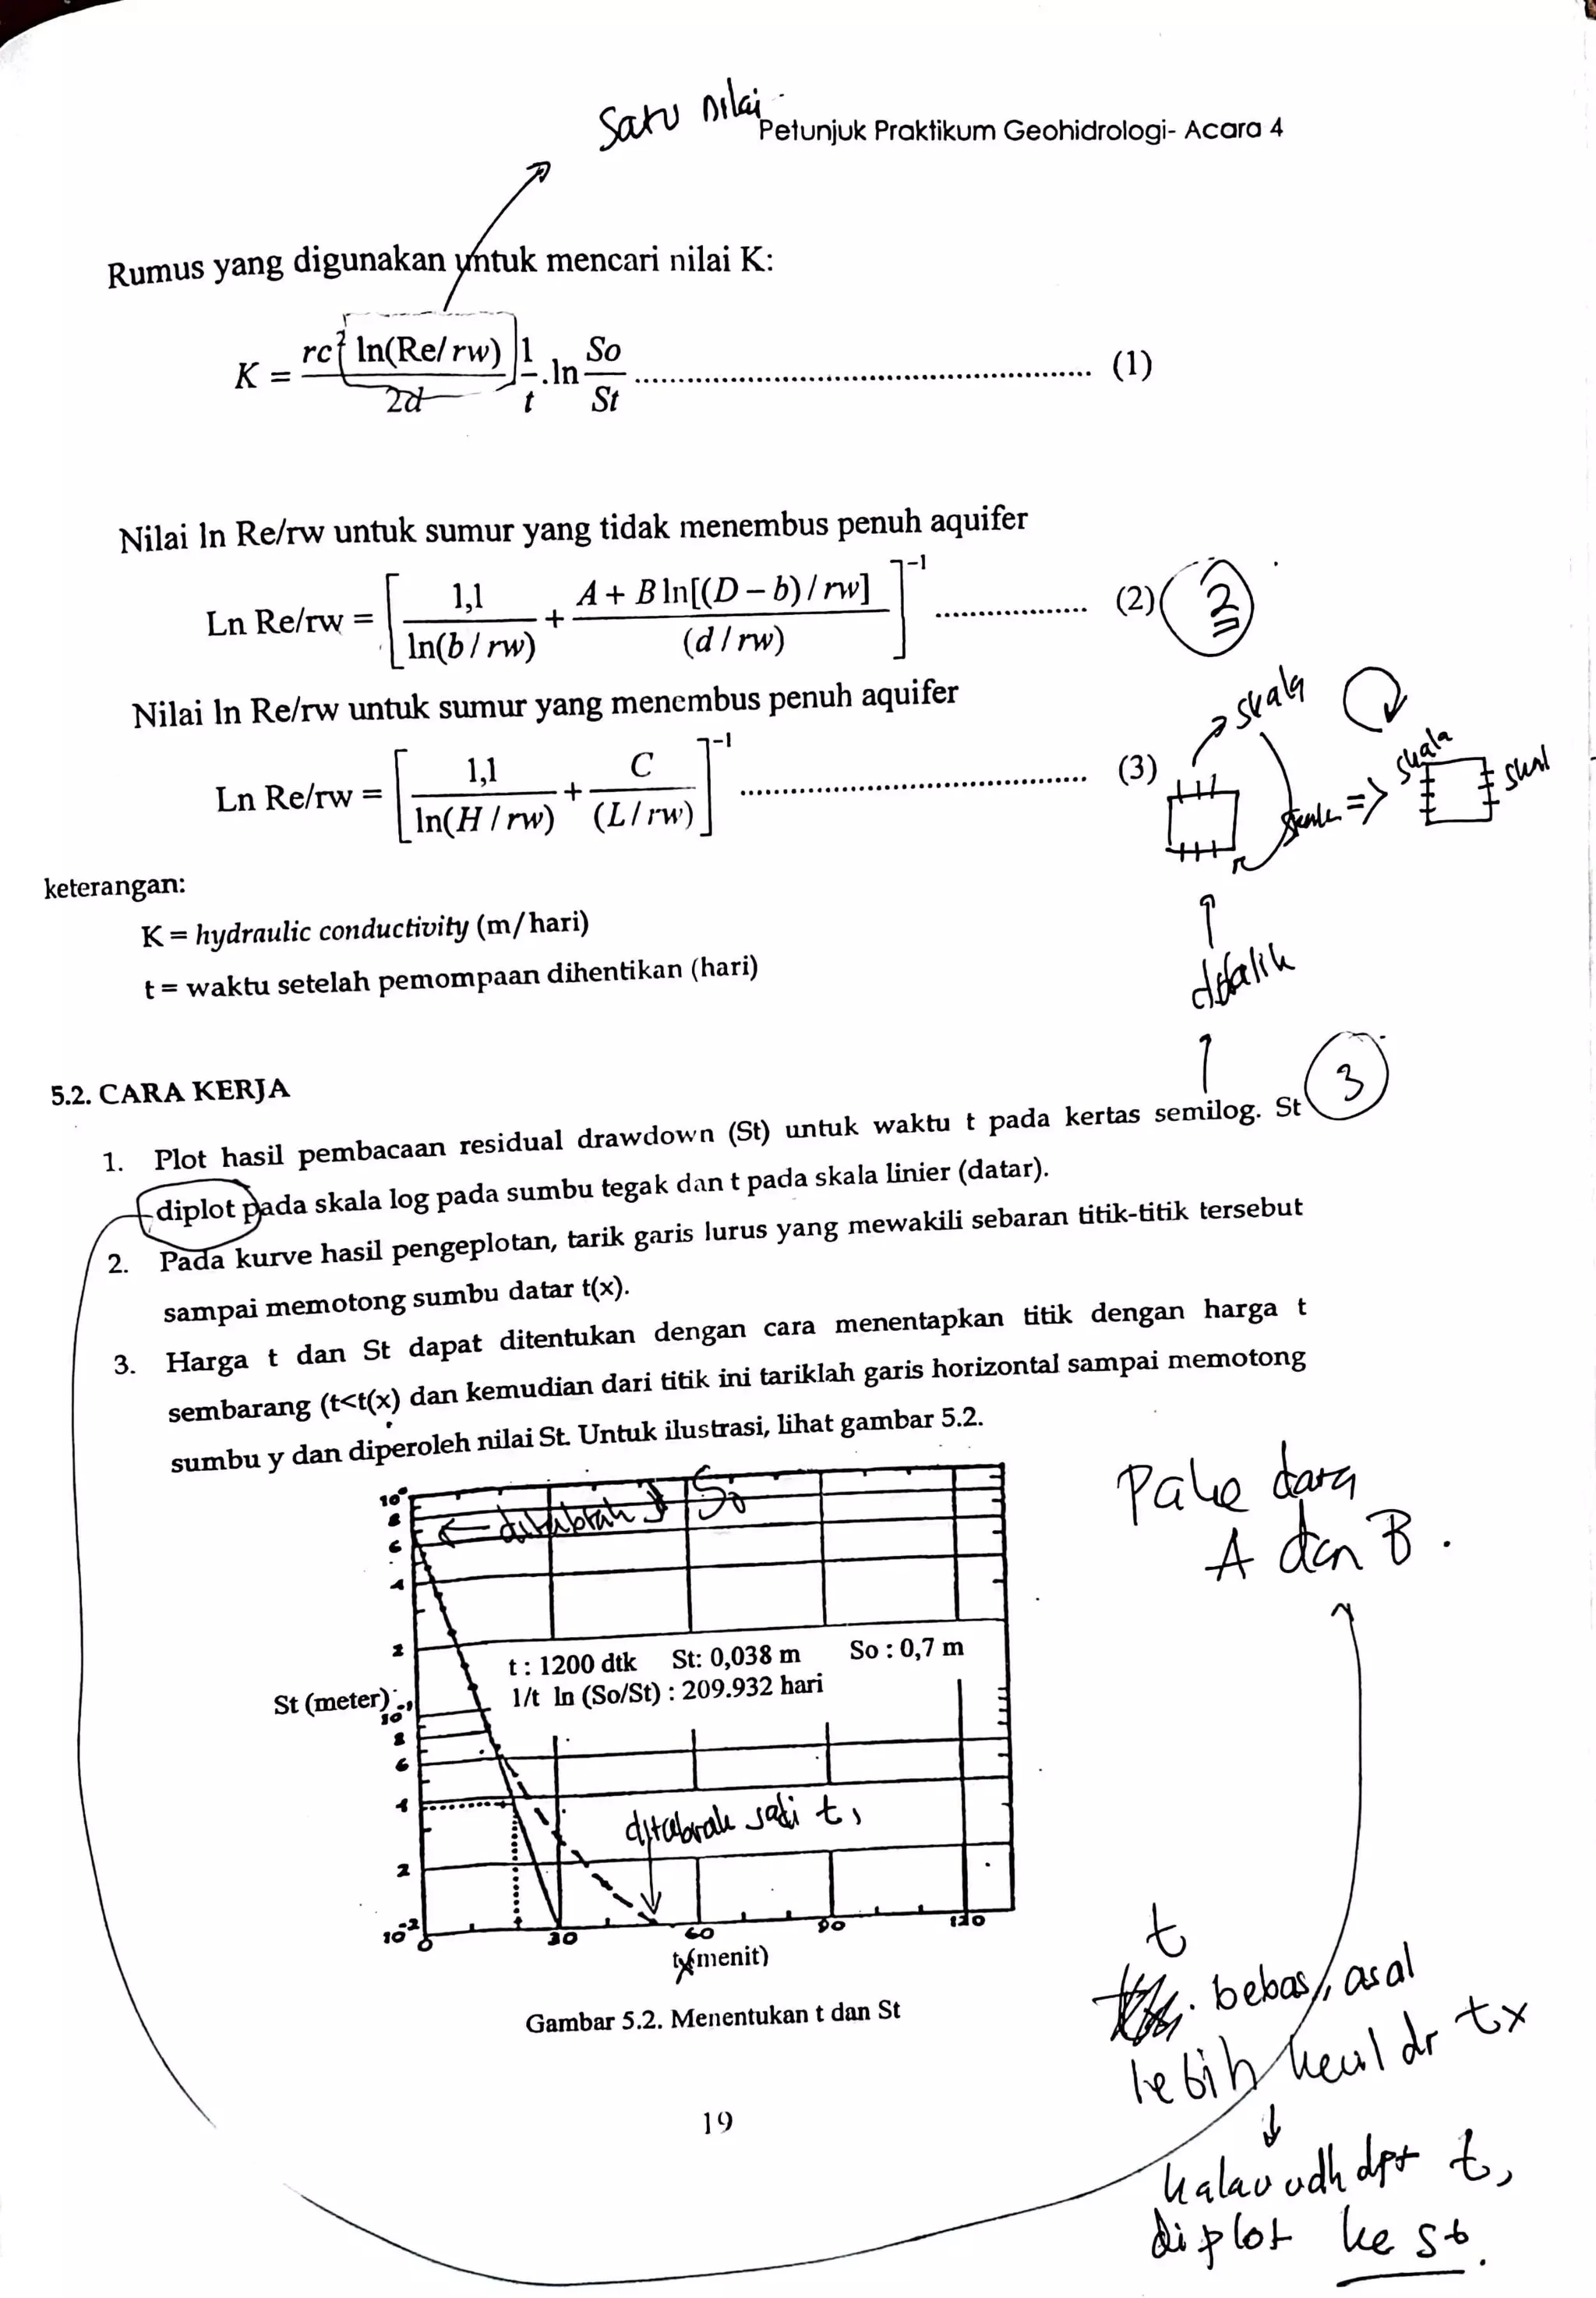 Satu nilai
Petunjuk Praktikum Geohidrologi- Acara 4
Rumus yang digunakan untuk mencari nilai K:
K = rc² ln(Re/rw) / 2d 1/t . ln So/St ........................ (1)
Nilai ln Re/rw untuk sumur yang tidak menembus penuh aquifer
Ln Re/rw = [ 1,1 / ln(b/rw) + A + B ln[(D – b)/rw] / (d/rw) ]⁻¹ .................. (2) 2
Nilai ln Re/rw untuk sumur yang menembus penuh aquifer
Ln Re/rw = [ 1,1 / ln(H/rw) + C / (L/rw) ]⁻¹ ........................ (3)
skala
skala
=>
skala
keterangan:
K = hydraulic conductivity (m/hari)
t = waktu setelah pemompaan dihentikan (hari)
dibalik
3
5.2. CARA KERJA
1. Plot hasil pembacaan residual drawdown (St) untuk waktu t pada kertas semilog. St
diplot pada skala log pada sumbu tegak dan t pada skala linier (datar).
2. Pada kurve hasil pengeplotan, tarik garis lurus yang mewakili sebaran titik-titik tersebut
sampai memotong sumbu datar t(x).
3. Harga t dan St dapat ditentukan dengan cara menentapkan titik dengan harga t
sembarang (t<t(x) dan kemudian dari titik ini tariklah garis horizontal sampai memotong
sumbu y dan diperoleh nilai St. Untuk ilustrasi, lihat gambar 5.2.
Pake data
A dan B.
10⁰
8
6
4
2
ditabrak
So
t : 1200 dtk St: 0,038 m So : 0,7 m
1/t ln (So/St) : 209.932 hari
St (meter)
10⁻¹
8
6
4
2
10⁻²
ditabrak jadi t,
0 30 60 90 120
t (menit)
Gambar 5.2. Menentukan t dan St
t
: bebas, asal
lebih kecil dr tx
kalau udh dpt t,
diplot ke st.
19